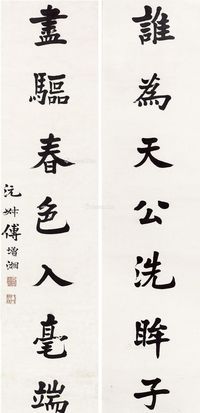 誰為天公洗眸子
盡驅春色入毫端
沅叔傅增湘